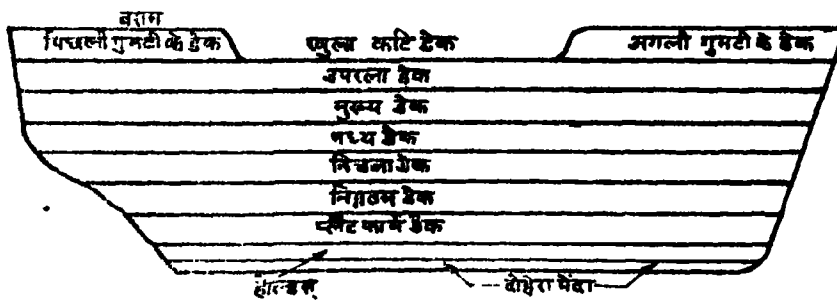 बराम
पिछली गुमटी के डेक खुला कटि डेक अगली गुमटी के डेक
उपरला डेक
मुख्य डेक
मध्य डेक
निचला डेक
निम्नतम डेक
प्लैटफार्म डेक
होल्डस् दोहरा पेंदा